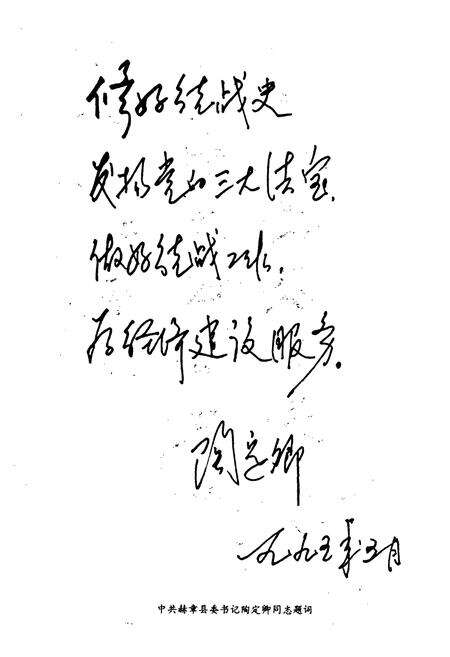 修好统战史
发扬党的三大法宝.
做好统战工作.
为经济建设服务.
陶定卿
一九九五年五月
中共赫章县委书记陶定卿同志题词